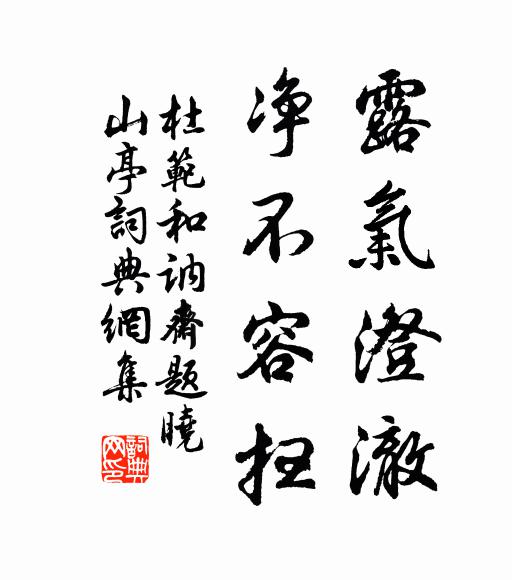 露氣澄澈
净不容抂
杜範和訥齋題曉
山亭詞典網集
詞典网印